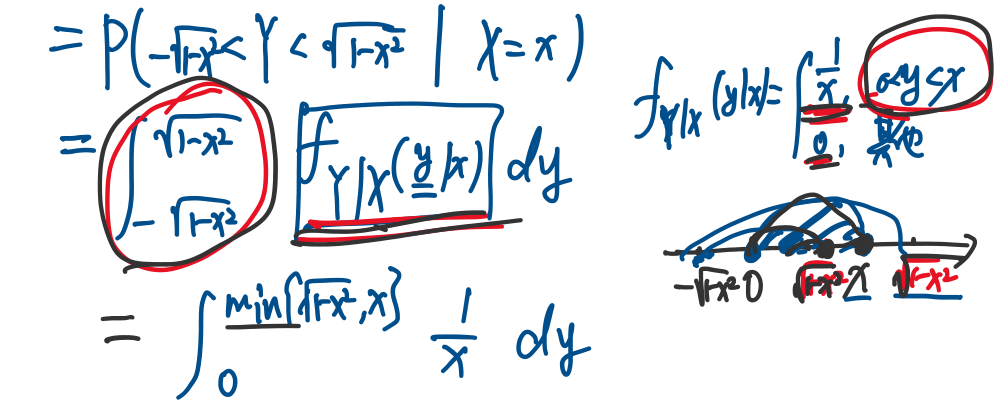 = P(-√1-x² < Y < √1-x² | X = x)
= ∫_{-√1-x²}^{√1-x²} f_{Y|X}(y|x) dy
= ∫_0^{min{√1-x², x}} 1/x dy
f_{Y|X}(y|x) = { 1/x, 0<y<x
0,
-√1-x² 0 √1-x² x √1-x²